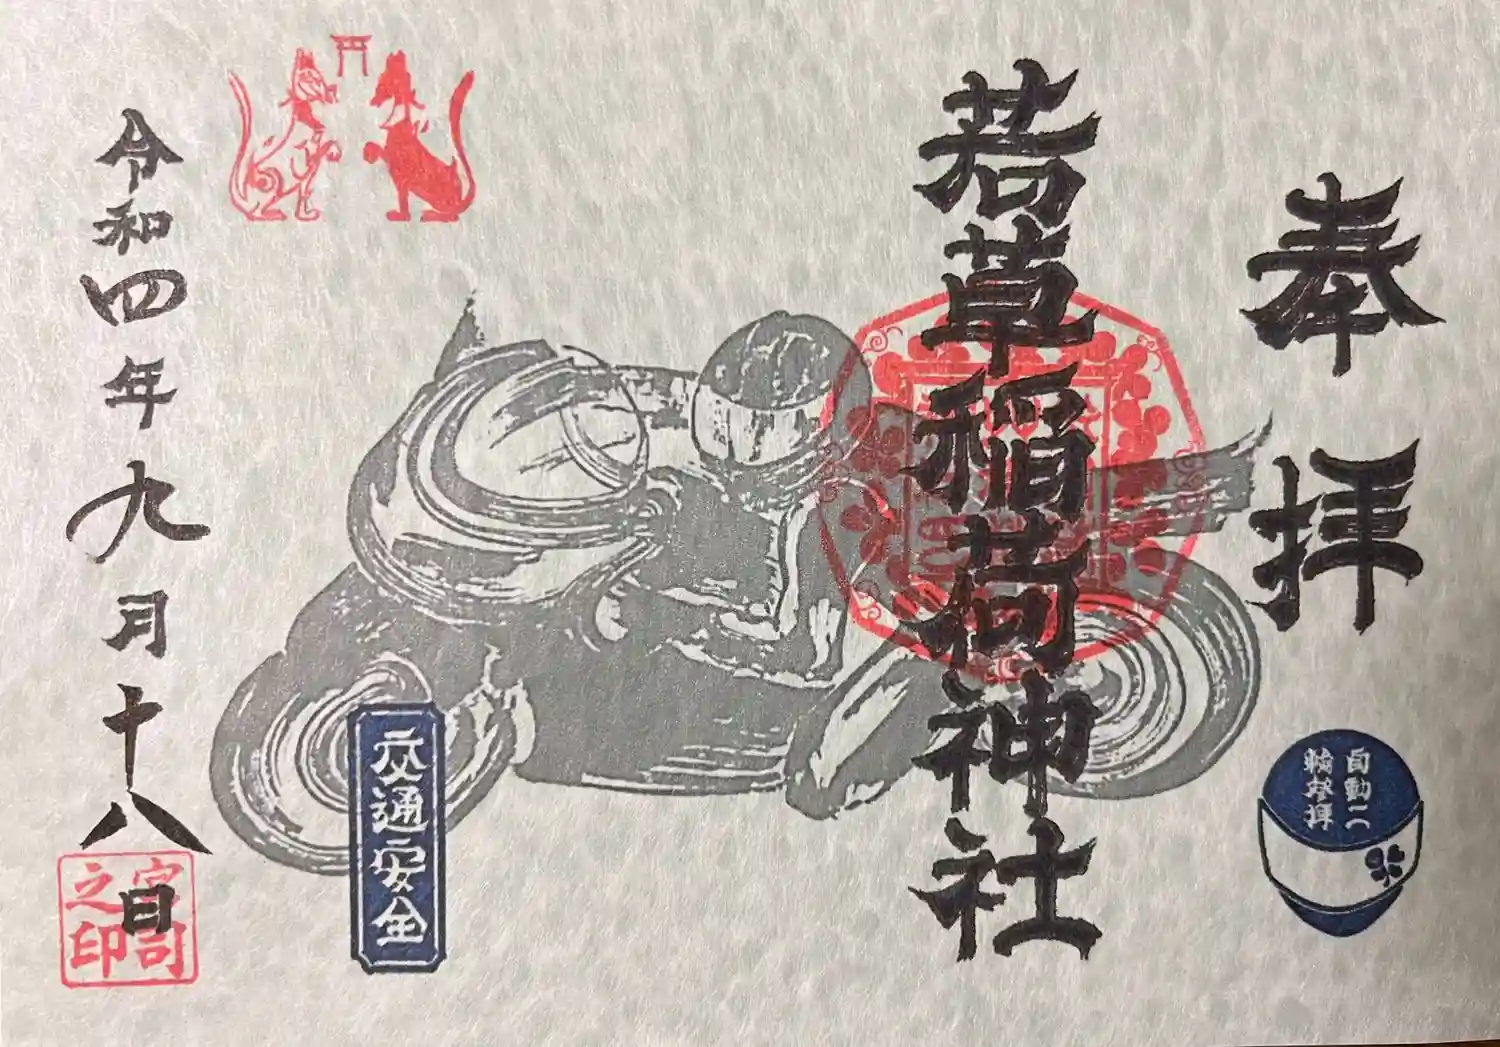 奉拝
自動二
輪参拝
若草稲荷神社
交通安全
令和四年九月十八日
宮司
之印